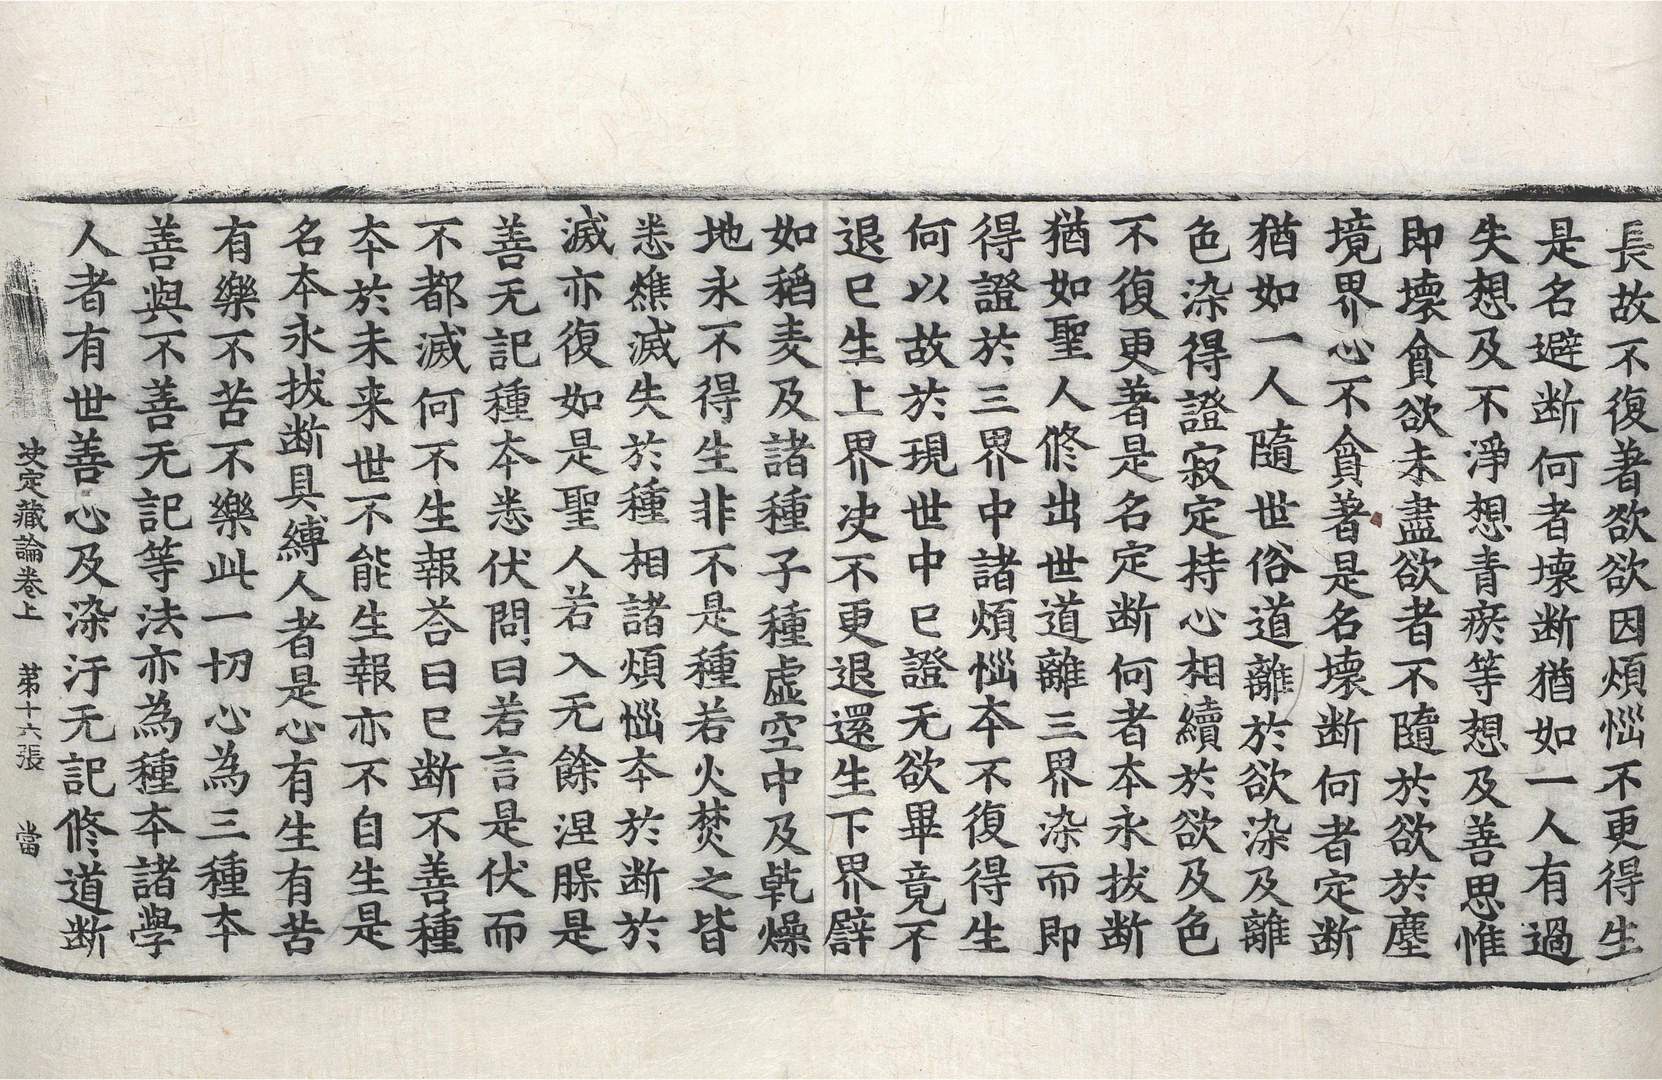 長故不復著欲欲因煩惱不更得生
是名避断何者壊断猶如一人有過
失想及不淨想青瘀等想及善思惟
即壊貪欲未盡欲者不隨於欲於塵
境界心不貪著是名壊断何者定断
猶如一人隨世俗道離於欲染及離
色染得證寂定持心相續於欲及色
不復更著是名定断何者本永拔断
猶如聖人修出世道離三界染而即
得證於三界中諸煩惱夲不復得生
何以故於現世中已證无欲畢竟不
退已生上界决不更退還生下界譬
如稻麦及諸種子種虛空中及乾燥
地永不得生非不是種若火焚之皆
悉燋滅失於種相諸煩惱夲於断於
滅亦復如是聖人若入无餘涅槃是
善无記種夲悉伏問曰若言是伏而
不都滅何不生報荅曰已断不善種
夲於未来世不能生報亦不自生是
名本永拔断具縛人者是心有生有苦
有樂不苦不樂此一切心為三種夲
善與不善无記等法亦為種夲諸學
人者有世善心及染汙无記修道断
决定藏論卷上 苐十六張 當